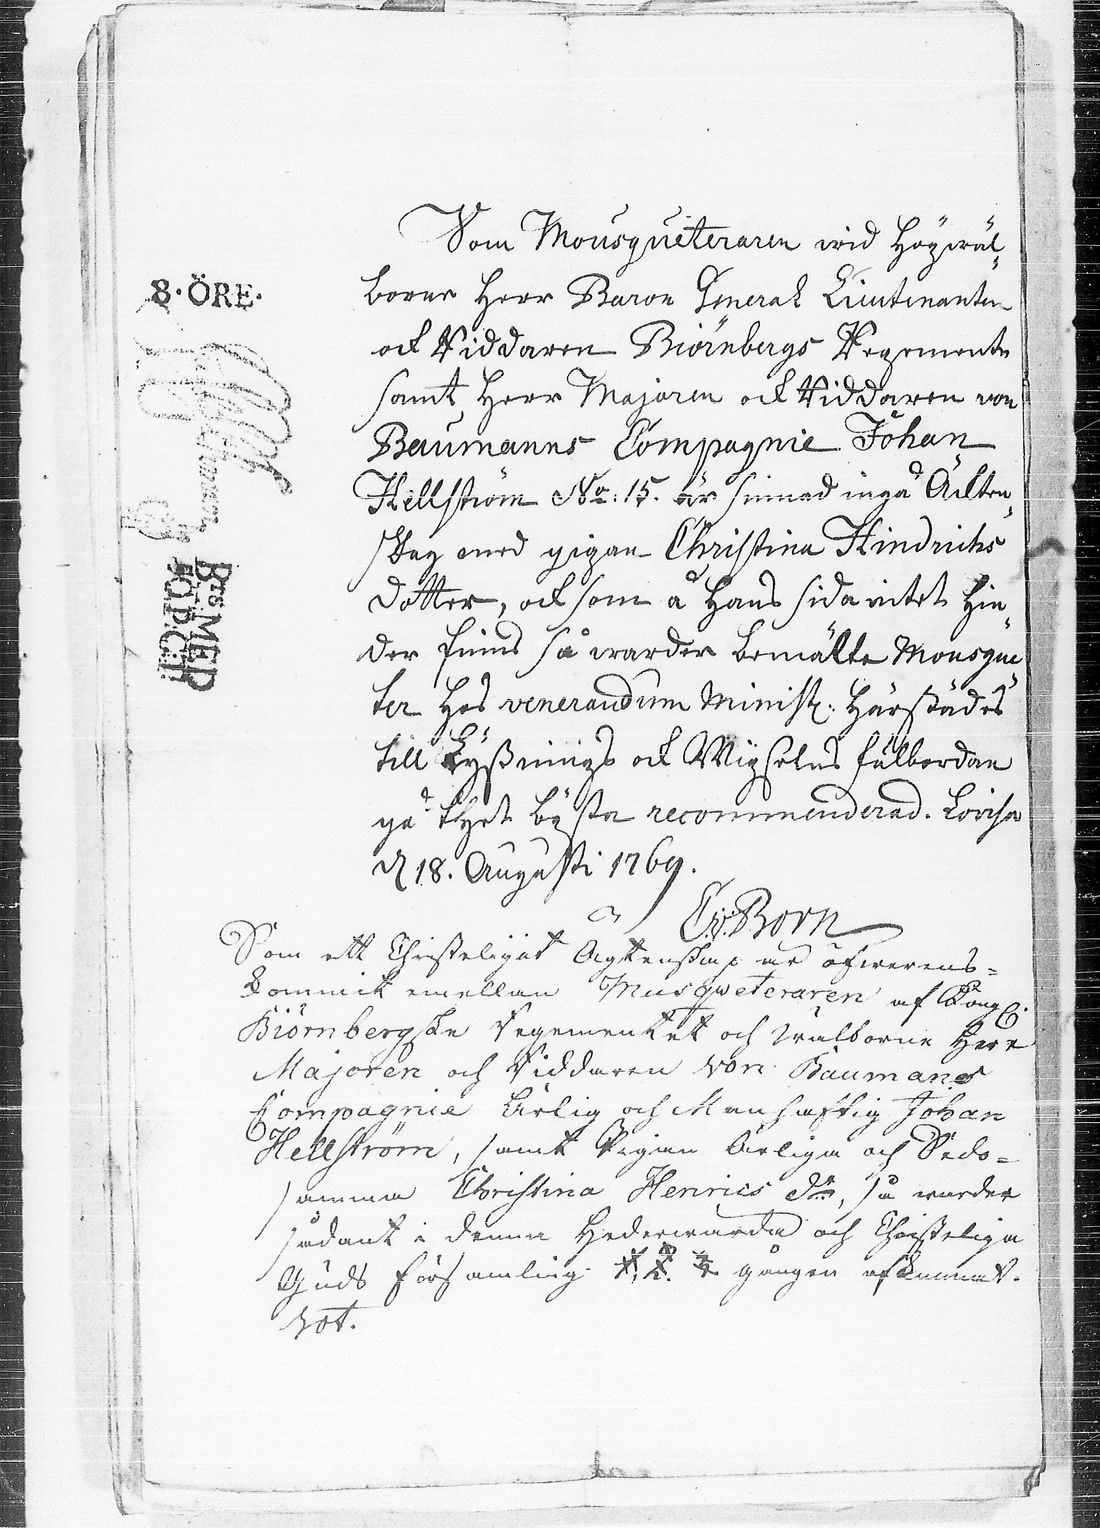 Som Mousqueteraren wid Högwäl-
borne Herr Baron General Lieutenanten
och Riddaren Biörnbergs Regemente
samt Herr Majoren och Riddaren von
Baumanns Compagnie Johan
Hellström No: 15. är sinnad ingå Ächten-
skap med pigan Christina Hindrichs
dotter, och som å hans sida intet hin-
der finns så warder bemälte Mousque
ter hos venerandum Minist: härstädes
till Lyßnings och Wigselns fulbordan
på thet bästa recommenderad. Lovisa
d 18. Augusti 1769.
C.v. Born
8·ÖRE·
Brs MED
Som ett Christeligit Ägtenskap är öfwerens-
kommit emellan Musqweteraren af Kongl.
Biörnbergske Regementet och wälborne Herr
Majoren och Riddaren von Baumans
Compagnie Ärlig och Manhaftig Johan
Hellström, samt Pigan Ärliga och Sedo-
samma Christina Henrics dr, så warder
sådant i denna Hederwärda och Christeliga
Guds Församling 1. 2. 3 gången afkunnat.
vot.